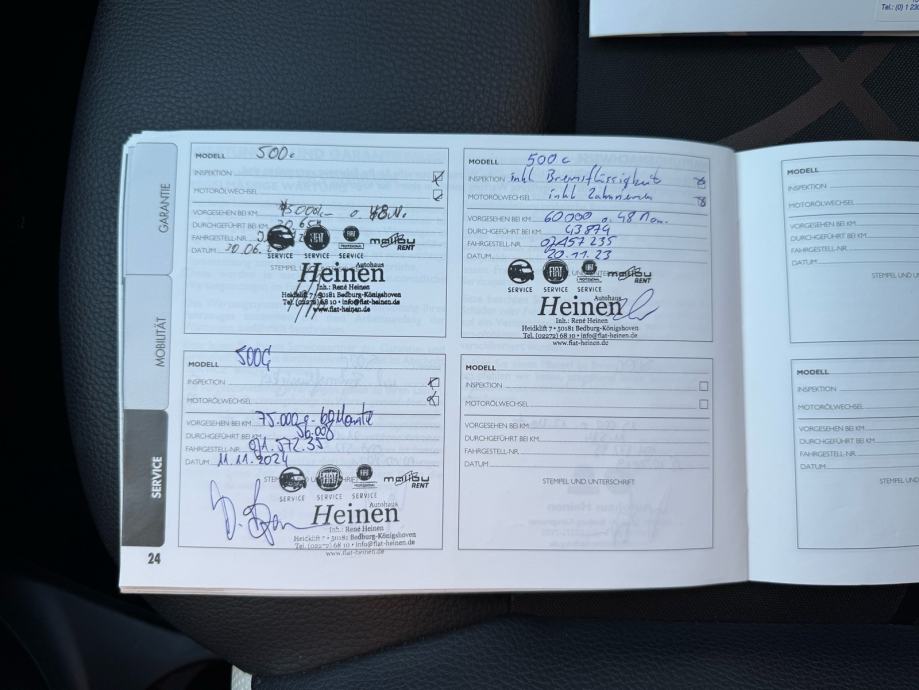 Tel.: (0) 1 230
GARANTIE
MOBILITÄT
SERVICE
24
MODELL 500c
INSPEKTION
MOTORÖLWECHSEL
VORGESEHEN BEI KM
DURCHGEFÜHRT BEI KM
FAHRGESTELL-NR.
DATUM 30.06.
SERVICE SERVICE SERVICE malibu RENT
STEMPEL
Autohaus
Heinen
Inh.: René Heinen
Heidklift 7 • 50181 Bedburg-Königshoven
Tel. (02272) 68 10 • info@fiat-heinen.de
www.fiat-heinen.de
MODELL 500 c
INSPEKTION inkl Bremsflüssigkeit
MOTORÖLWECHSEL inkl Zahnriemen
VORGESEHEN BEI KM 60.000 o. 48 Mon.
DURCHGEFÜHRT BEI KM 43874
FAHRGESTELL-NR.
DATUM 20.11.23
SERVICE SERVICE SERVICE malibu RENT
UND UNTERSCHRIFT
Autohaus
Heinen
Inh.: René Heinen
Heidklift 7 • 50181 Bedburg-Königshoven
Tel. (02272) 68 10 • info@fiat-heinen.de
www.fiat-heinen.de
MODELL
INSPEKTION
MOTORÖLWECHSEL
VORGESEHEN BEI KM
DURCHGEFÜHRT BEI KM
FAHRGESTELL-NR.
DATUM
STEMPEL UND
MODELL 500C
INSPEKTION
MOTORÖLWECHSEL
VORGESEHEN BEI KM 75.000
DURCHGEFÜHRT BEI KM
FAHRGESTELL-NR.
DATUM 11.11.2024
SERVICE SERVICE SERVICE malibu RENT
Autohaus
Heinen
Inh.: René Heinen
Heidklift 7 • 50181 Bedburg-Königshoven
Tel. (02272) 68 10 • info@fiat-heinen.de
www.fiat-heinen.de
MODELL
INSPEKTION
MOTORÖLWECHSEL
VORGESEHEN BEI KM
DURCHGEFÜHRT BEI KM
FAHRGESTELL-NR.
DATUM
STEMPEL UND UNTERSCHRIFT
MODELL
INSPEKTION
MOTORÖLWECHSEL
VORGESEHEN BEI KM
DURCHGEFÜHRT BEI KM
FAHRGESTELL-NR.
DATUM
STEMPEL UND